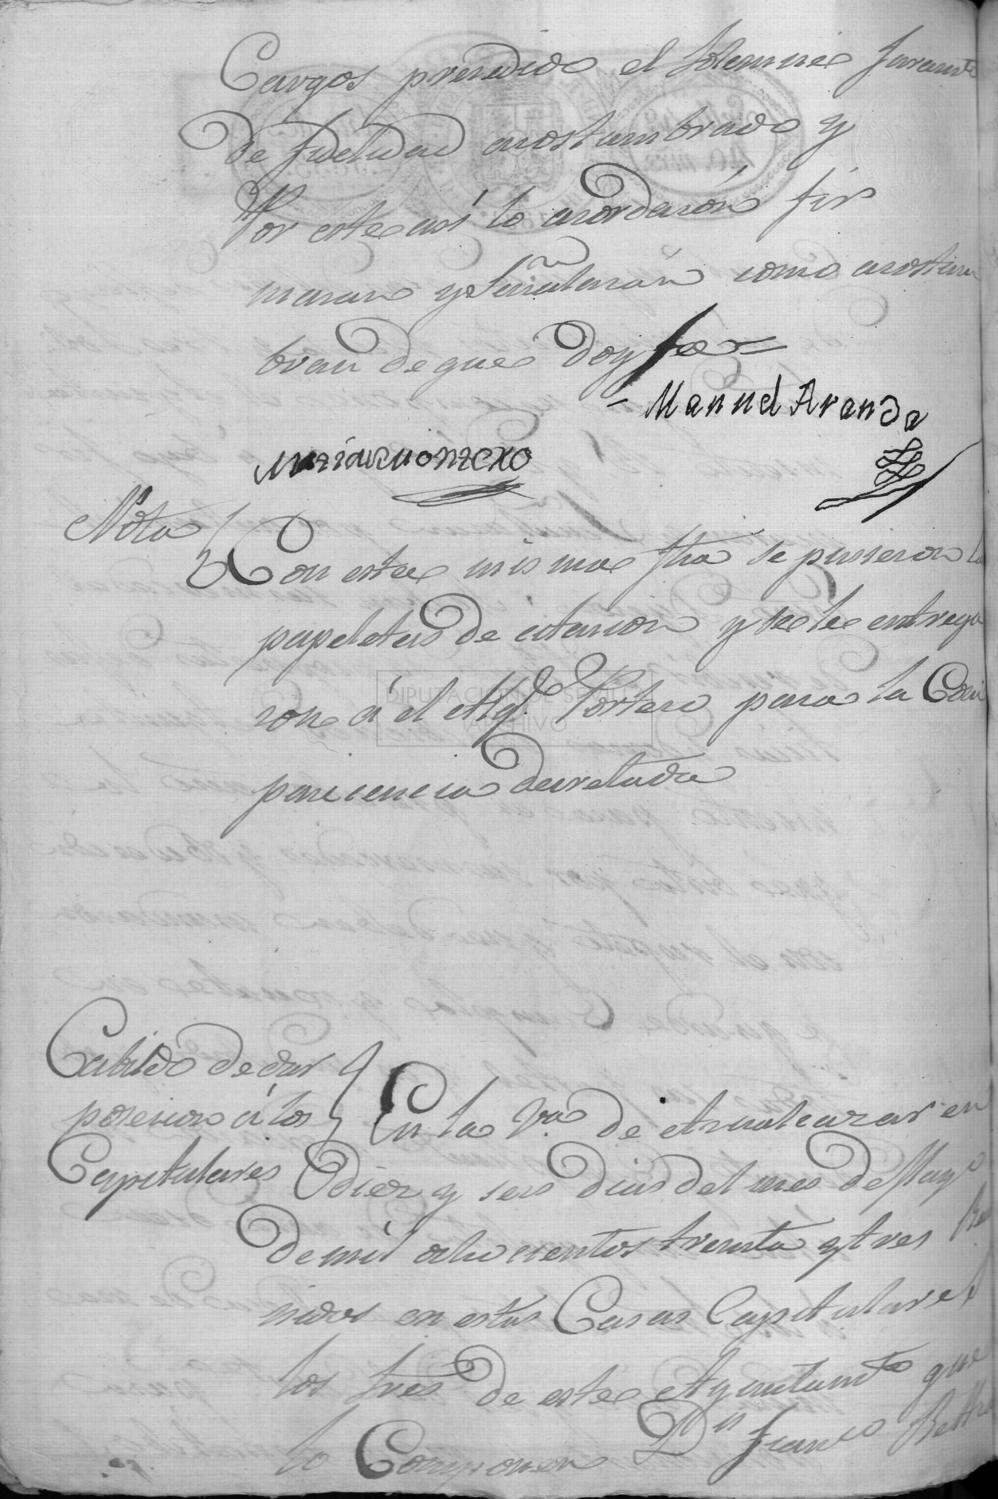 Cargos presedido el solemne Juramto
de fidelidad acostumbrado y
Por este así lo acordarón fir
maran y Señalarán como acostum
bran de que Doy fee =
Manuel Aranda
Nota
Con esta misma fha se pusieron la
papeletas de citacion y se le entrega
ron á el Alg.l Portero para la Com
parecencia decretada
DIPUTACION DE SEVILLA
ARCHIVO
Cabildo de dar
posesion á los
Capitulares
En la Va de Aznalcazar en
diez y seis dias del mes de Mayo
de mil ocho cientos treinta y tres Reu
nidos en estas Casas Capitulares
los Sres de este Ayuntamto que
lo Componen Dn Franco